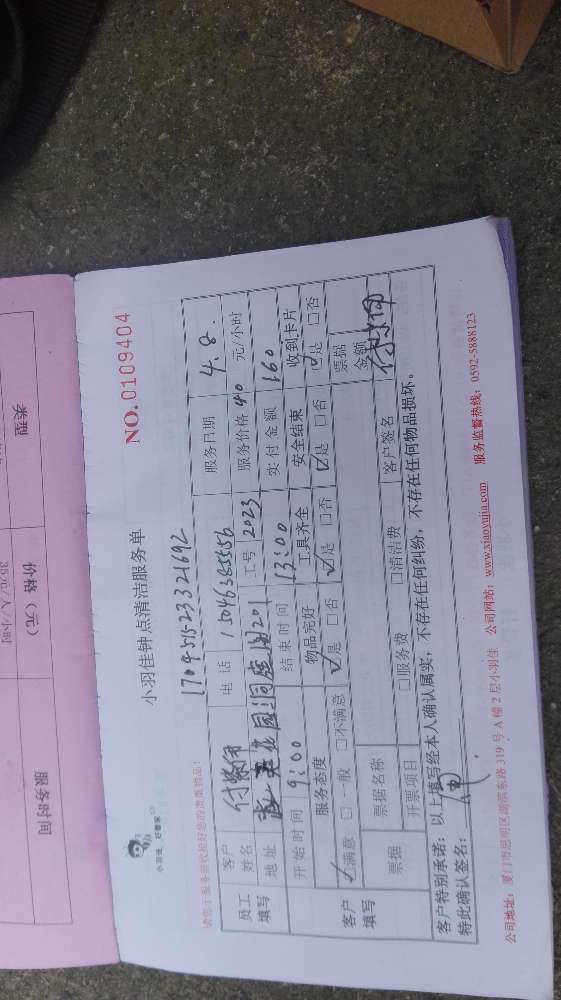 NO.0109404
小羽佳钟点清洁服务单
小羽佳 好管家
请您于服务前收拾好您的贵重物品!
170951523321692
员工填写
客户姓名
电话 15046365556
服务日期 4.8.
地址
花园
201
工号 2023
服务价格 40 元/小时
开始时间 9:00
结束时间 13:00
实付金额 160
客户填写
服务态度
物品完好
工具齐全
安全结束
收到卡片
☑满意 □一般 □不满意
☑是 □否
☑是 □否
☑是 □否
☑是 □否
票据
票据名称
票据金额
开票项目
□服务费
□清洁费
客户签名
客户特别承诺:以上填写经本人确认属实,不存在任何纠纷,不存在任何物品损坏。
特此确认签名:
公司地址:厦门市思明区湖滨东路319号A幢2层小羽佳 公司网站:www.xiaoyujia.com 服务监督热线:0592-5888123
类型
价格(元)
服务时间
35元/人/小时